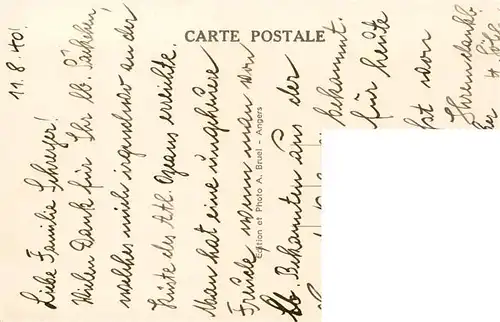 CARTE POSTALE
11.8.40!
Liebe Familie Schreyer!
Vielen Dank für Ihr lb. Päckchen,
welches mich irgendwo an der
Küste des Atl. Ozeans erreichte.
Man hat eine ungeheuere
Freude wenn man von
lb. Bekannten aus der
bekannt.
für heute
von
Ihrem dankb.
Edition et Photo A. Bruel - Angers